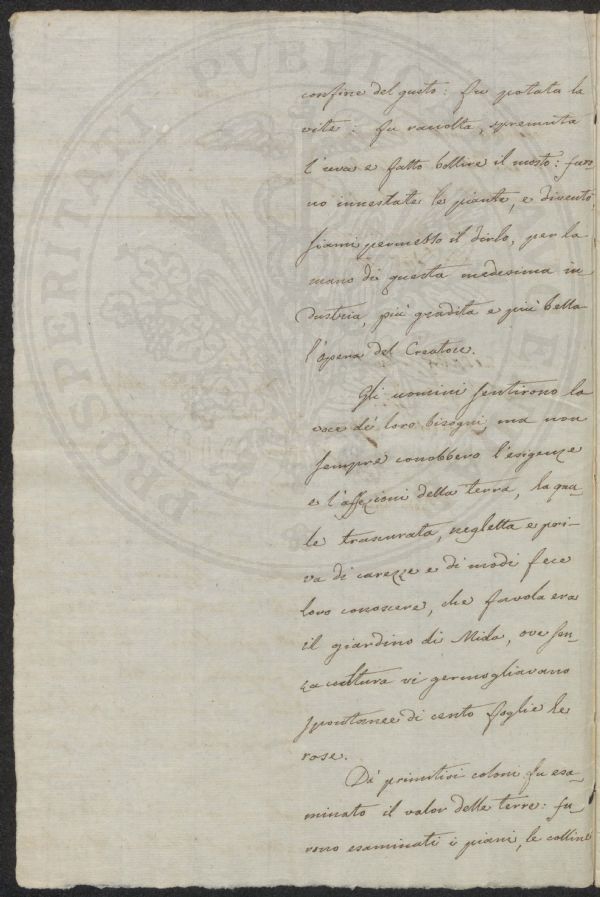 confine del gusto: fu potata la
vite: fu racolta, spremuta
l'uva e fatto bollire il mosto: furo-
no innestate le piante, e diventò,
siami permesso il dirlo, per la
mano di questa medesima in
dustria, più gradita e più bella
l'opera del Creatore.
Gli uomini sentirono la
voce de' loro bisogni, ma non
sempre conobbero l'esigenze
e l'affezioni della terra, la qua-
le trascurata, negletta e pri-
va di carezze e di modi fece
loro conoscere, che favola era
il giardino di Mida, ove sen-
za cultura vi germogliavano
spontanee di cento foglie le
rose.
Da' primitivi coloni fu esa-
minato il valor delle terre: fu-
rono esaminati i piani, le colline
PROSPERITATI PUBLICAE